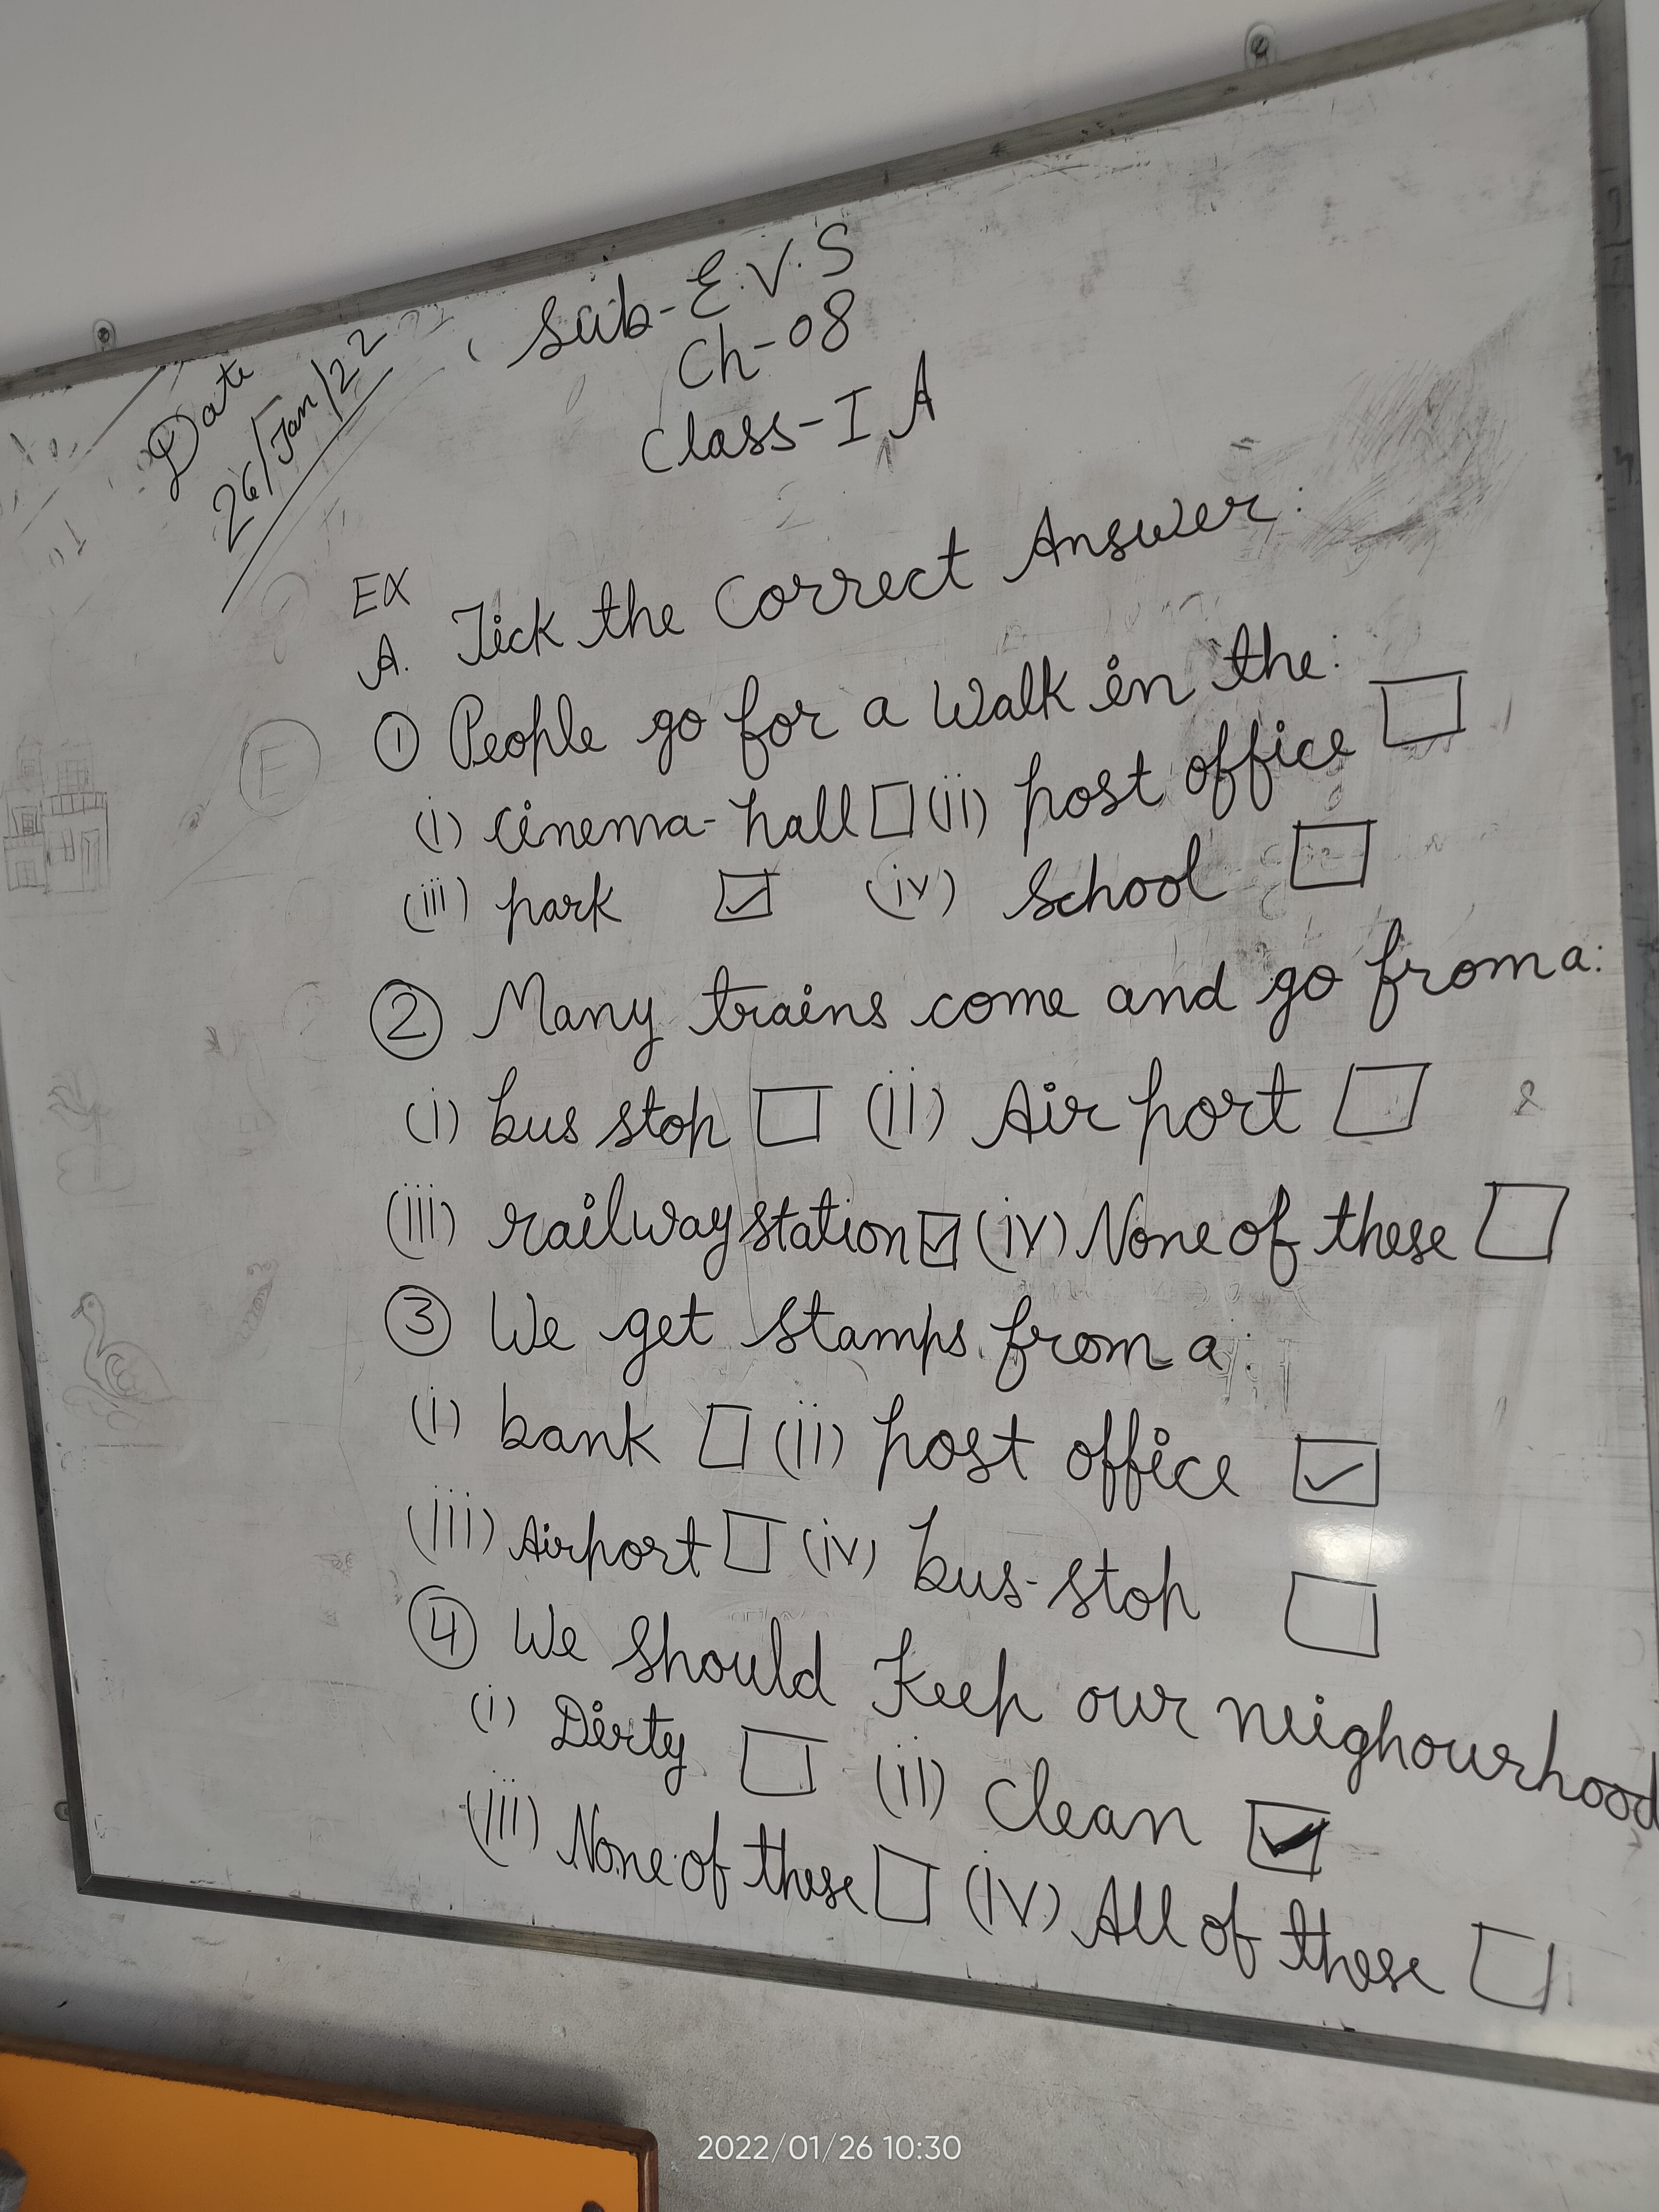 Date
26/Jan/22
Sub-E.V.S
Ch-08
Class-I A
EX
A. Tick the Correct Answer:
① People go for a Walk in the:
(i) cinema-hall ☐ (ii) post office ☐
(iii) park ☑ (iv) School ☐
② Many trains come and go from a:
(i) bus stop ☐ (ii) Air port ☐
(iii) railway station ☑ (iv) None of these ☐
③ We get stamps from a:
(i) bank ☐ (ii) post office ☑
(iii) Airport ☐ (iv) bus-stop ☐
④ We should Keep our neighourhood
(i) Dirty ☐ (ii) Clean ☑
(iii) None of these ☐ (iv) All of these ☐
2022/01/26 10:30